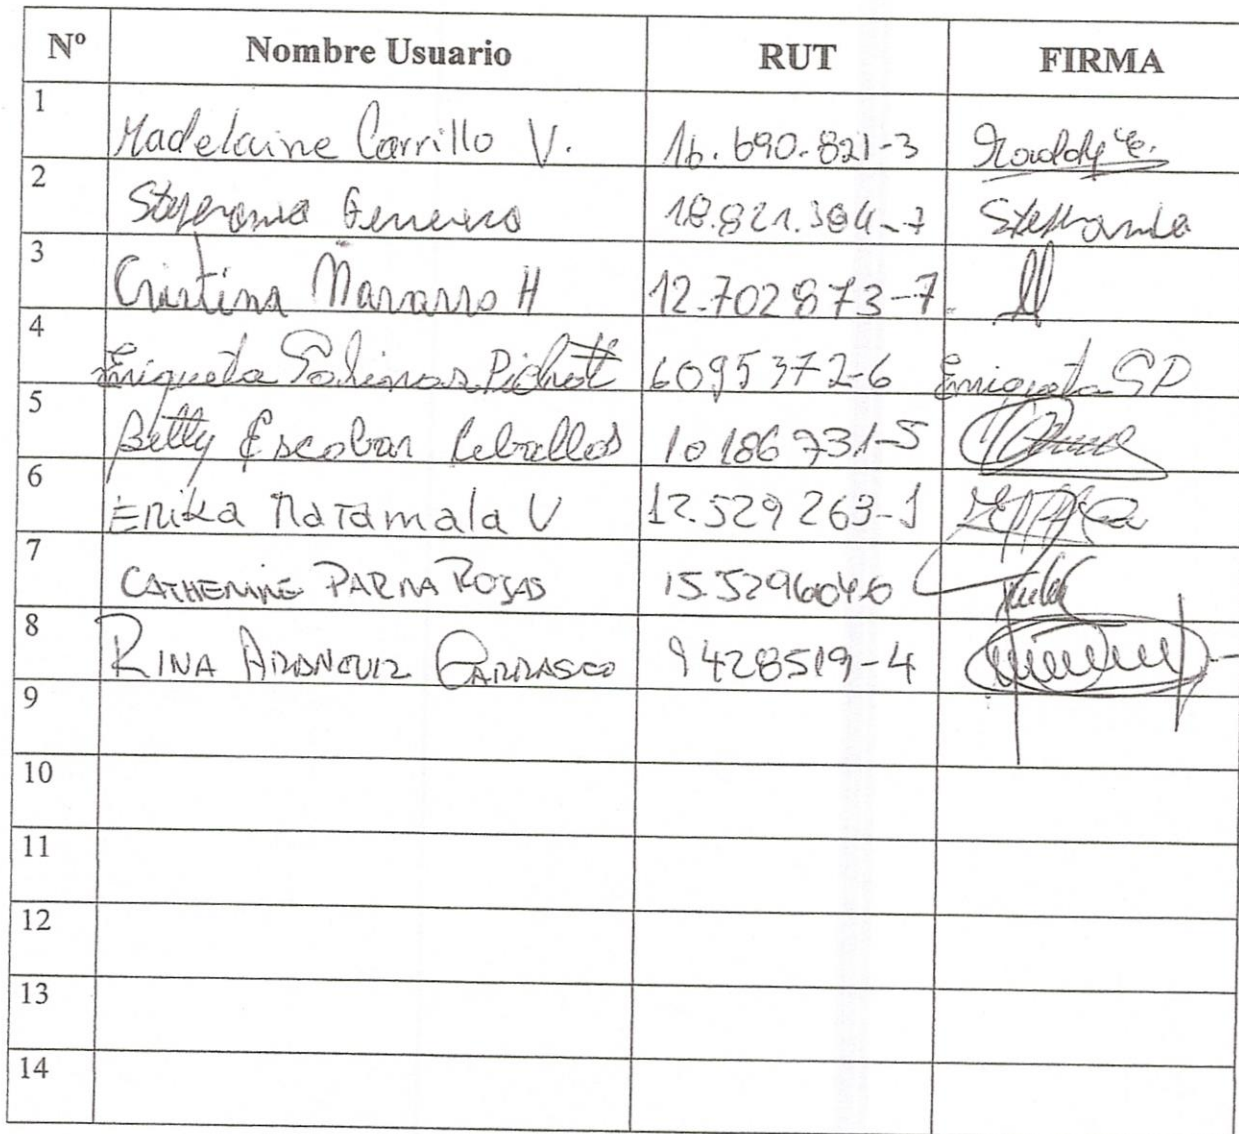 Nº Nombre Usuario RUT FIRMA
1 Madelaine Carrillo V. 16.690.821-3
2 18.821.384-7 Stephania
3 Cristina Navarro H 12.702873-7
4 Enriqueta Salinas 6095372-6 Enriqueta SP
5 Betty Escobar Ceballos 10186731-5
6 Erika Matamala V 12.529263-1
7 CATHERINE PARRA ROJAS 15.5296040
8 RINA CARRASCO 9428519-4
9
10
11
12
13
14